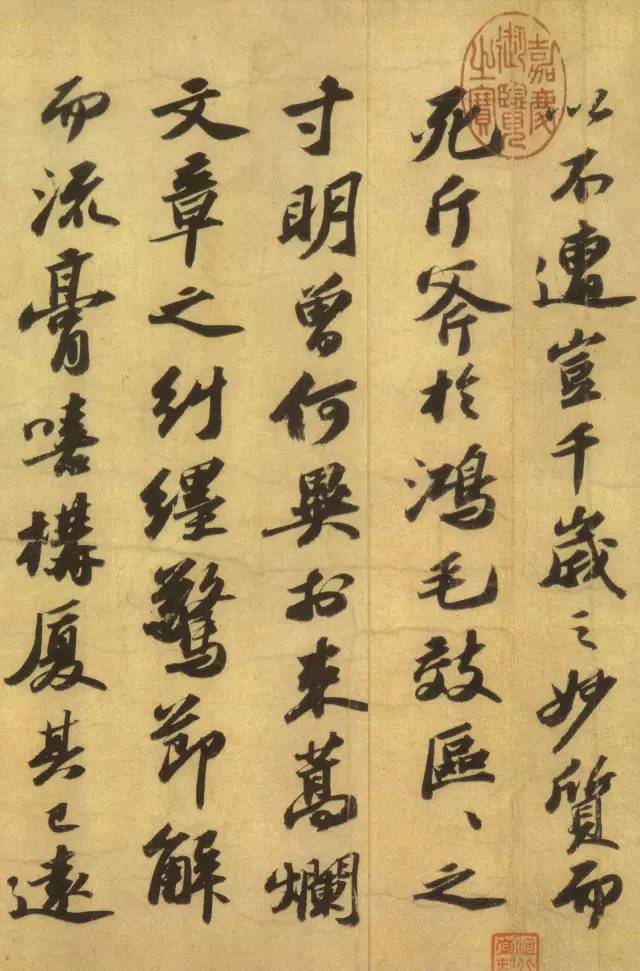 以不遭豈千歲之妙質而
死斤斧於鴻毛效區〻之
寸明曾何異於束蒿爛
文章之糾纆驚節解
而流膏嘻構厦其已遠
嘉慶御覽之寶